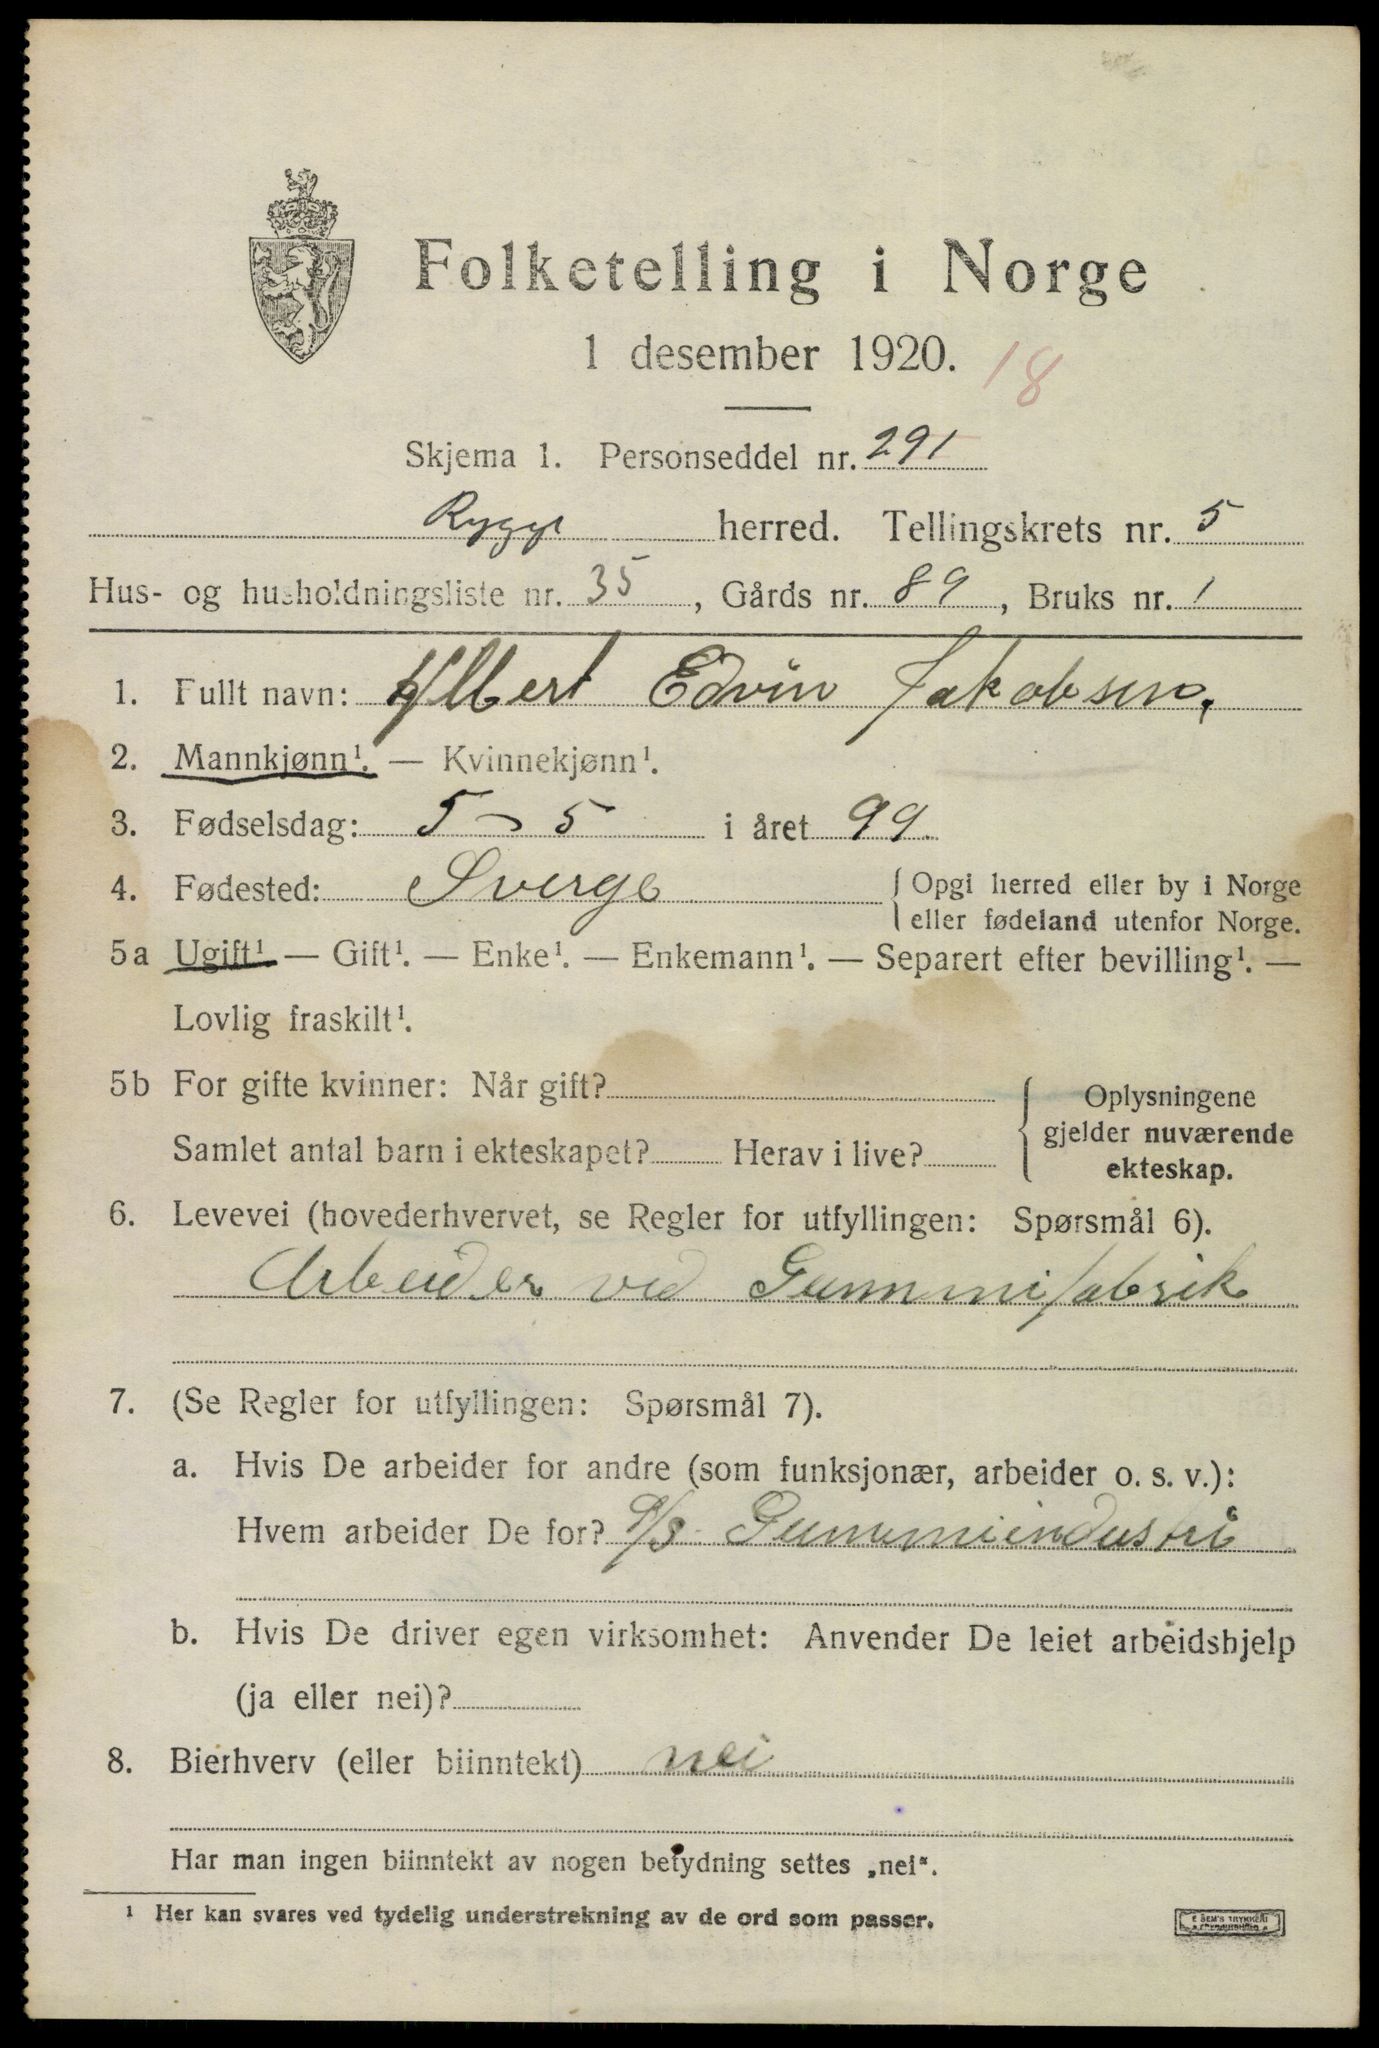 Folketelling i Norge
1 desember 1920.
18
Skjema 1. Personseddel nr. 291
Rygge herred. Tellingskrets nr. 5
Hus- og husholdningsliste nr. 35, Gårds nr. 89, Bruks nr. 1
1. Fullt navn: Albert Edvin Jakobsen.
2. Mannkjønn¹. — Kvinnekjønn¹.
3. Fødselsdag: 5 - 5 i året 99
4. Fødested: Sverge { Opgi herred eller by i Norge
eller fødeland utenfor Norge.
5a Ugift¹. — Gift¹. — Enke¹. — Enkemann¹. — Separert efter bevilling¹. —
Lovlig fraskilt¹.
5b For gifte kvinner: Når gift?
Samlet antal barn i ekteskapet? Herav i live?
{ Oplysningene
gjelder nuværende
ekteskap.
6. Levevei (hovederhvervet, se Regler for utfyllingen: Spørsmål 6).
Arbeider ved Gummifabrik
7. (Se Regler for utfyllingen: Spørsmål 7).
a. Hvis De arbeider for andre (som funksjonær, arbeider o. s. v.):
Hvem arbeider De for? A/S Gummiindustri
b. Hvis De driver egen virksomhet: Anvender De leiet arbeidshjelp
(ja eller nei)?
8. Bierhverv (eller biinntekt) nei
Har man ingen biinntekt av nogen betydning settes „nei“.
¹ Her kan svares ved tydelig understrekning av de ord som passer.
E SEM'S TRYKKERI